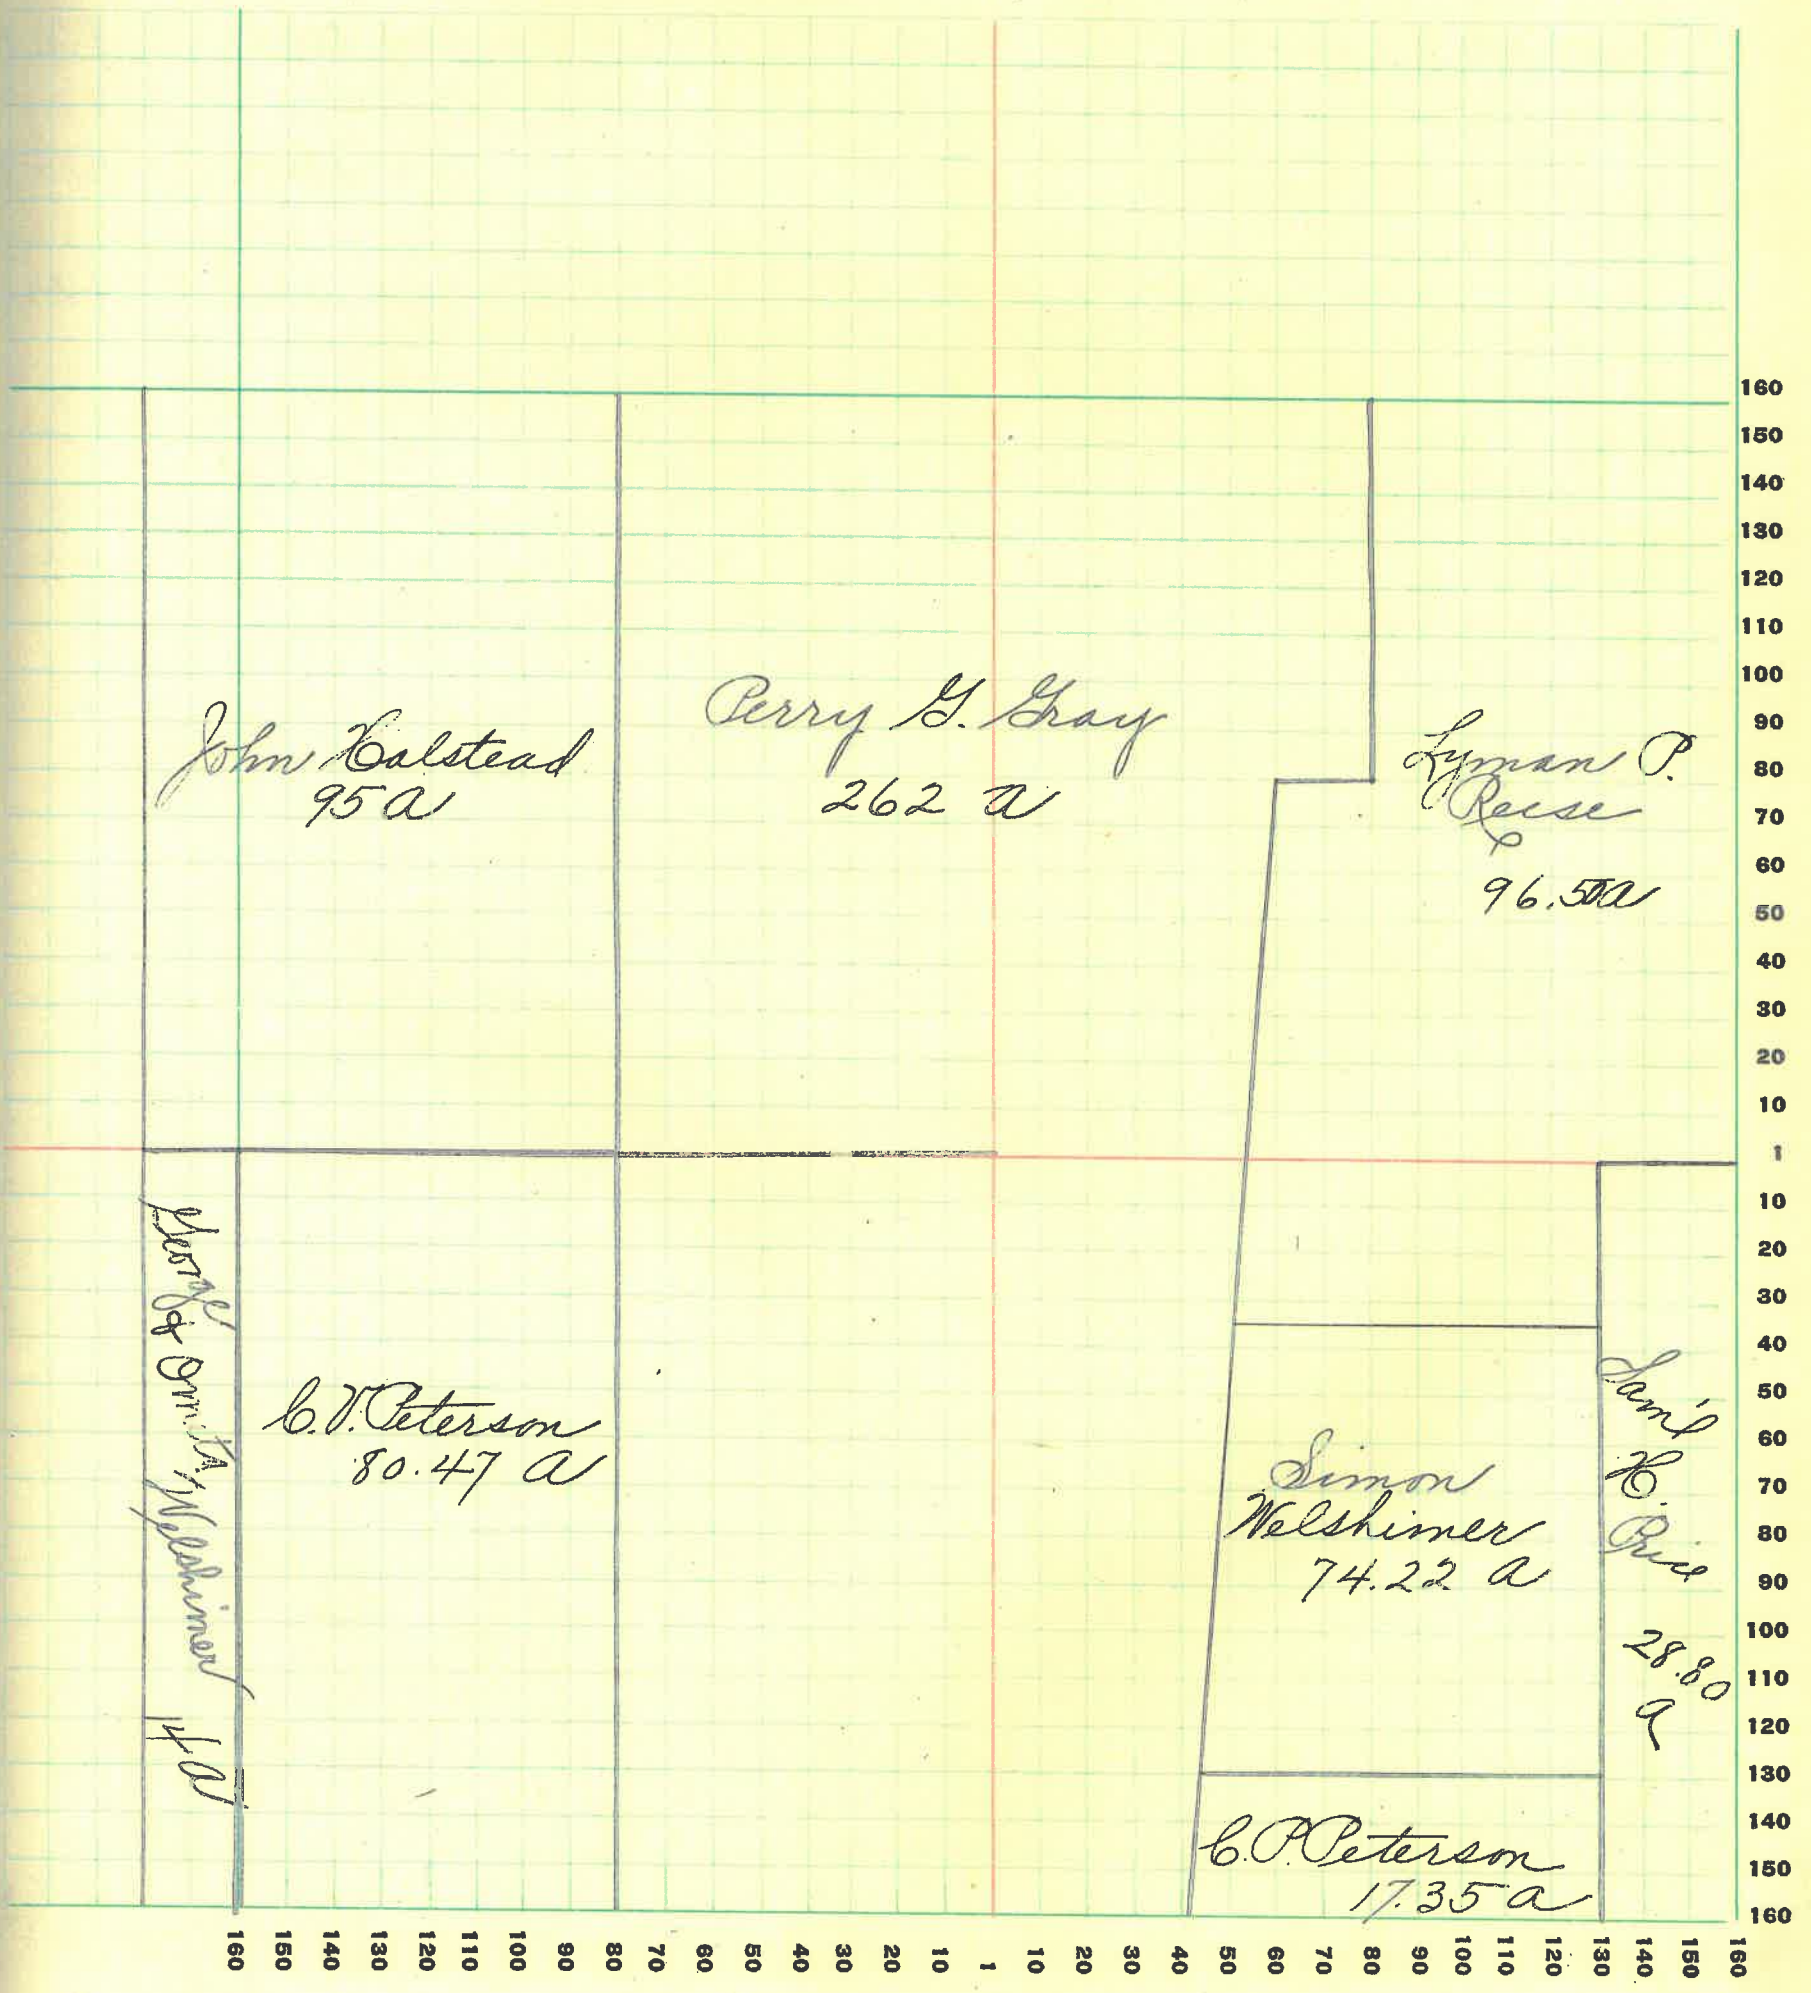 John Halstead
95 A
Perry G. Gray
262 A
Lyman P.
Reese
96.50 A
George
&
Welshimer
14 A
C.V. Peterson
80.47 A
Simon
Welshimer
74.22 A
Sam'l
H.
Price
28.80
A
C.P. Peterson
17.35 A
160
150
140
130
120
110
100
90
80
70
60
50
40
30
20
10
1
10
20
30
40
50
60
70
80
90
100
110
120
130
140
150
160
160 150 140 130 120 110 100 90 80 70 60 50 40 30 20 10 1 10 20 30 40 50 60 70 80 90 100 110 120 130 140 150 160